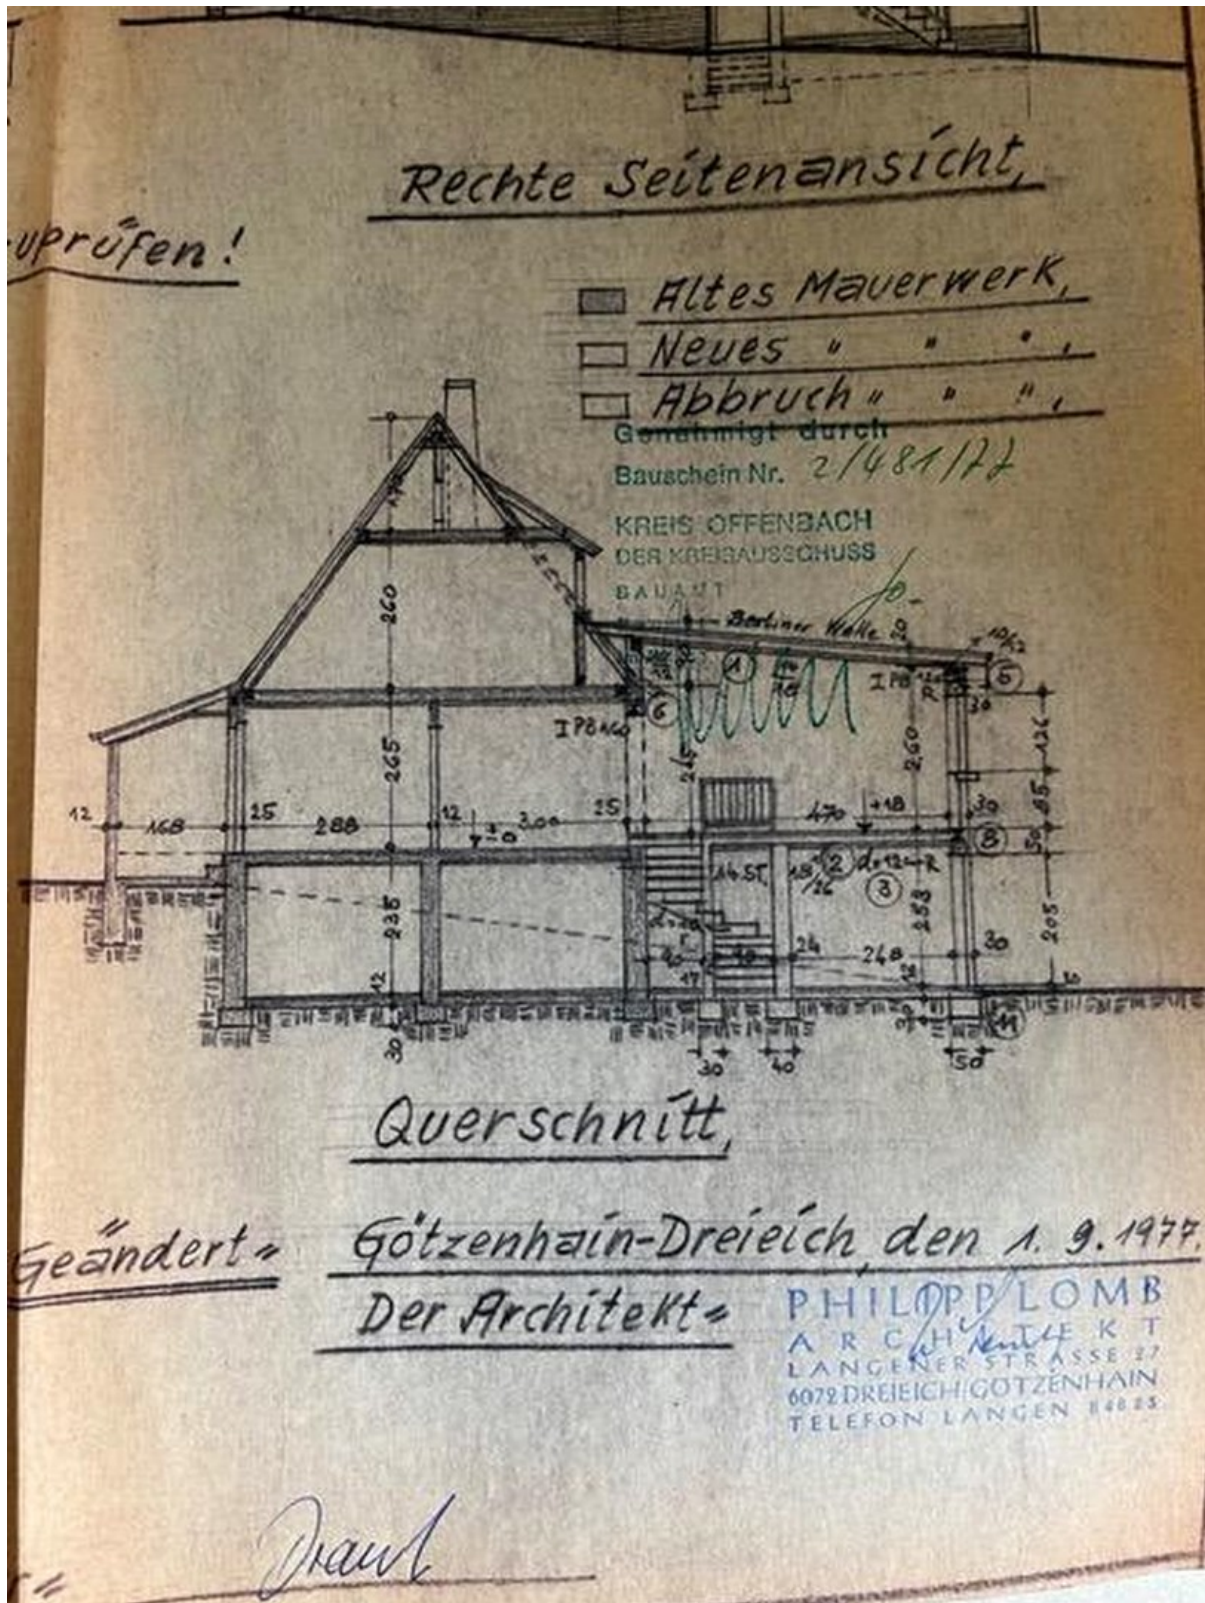 Rechte Seitenansicht,
uprüfen!
Altes Mauerwerk,
Neues " " " ,
Abbruch " " " ,
Genehmigt durch
Bauschein Nr. 2/481/77
KREIS OFFENBACH
DER KREISAUSSCHUSS
BAUAMT
Berliner Welle
20
1
I PB
5
30
6
I PB 160
260
265
260
126
85
12
168
25
288
12
± 0
300
25
470
+18
30
50
8
14 ST.
18/26
2
d=12cm
3
235
253
205
24
248
30
12
17
30
30
40
50
11
Querschnitt,
Geändert=
Götzenhain-Dreieich, den 1. 9. 1977.
Der Architekt=
PHILIPP LOMB
ARCHITEKT
LANGENER STRASSE 27
6072 DREIEICH/GÖTZENHAIN
TELEFON LANGEN